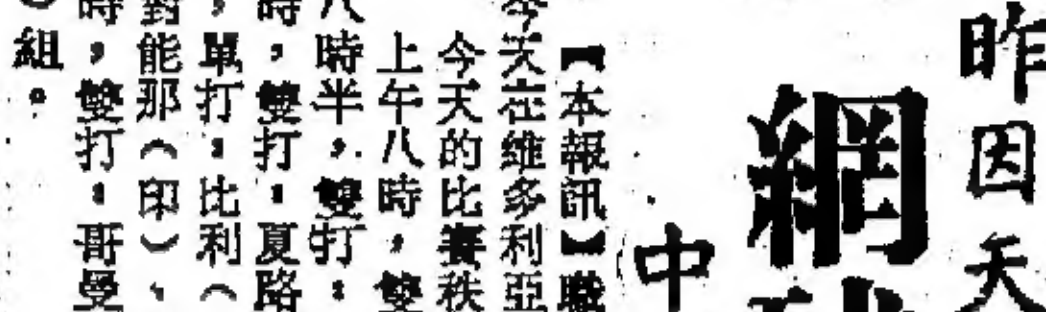 昨因天
網
中
【本報訊】職
今天在維多利亞
今天的比賽秩
上午八時，雙
八時半，雙打：
時，雙打：夏路
，單打：比利（
對能那（印）、
時，雙打：哥曼
組。